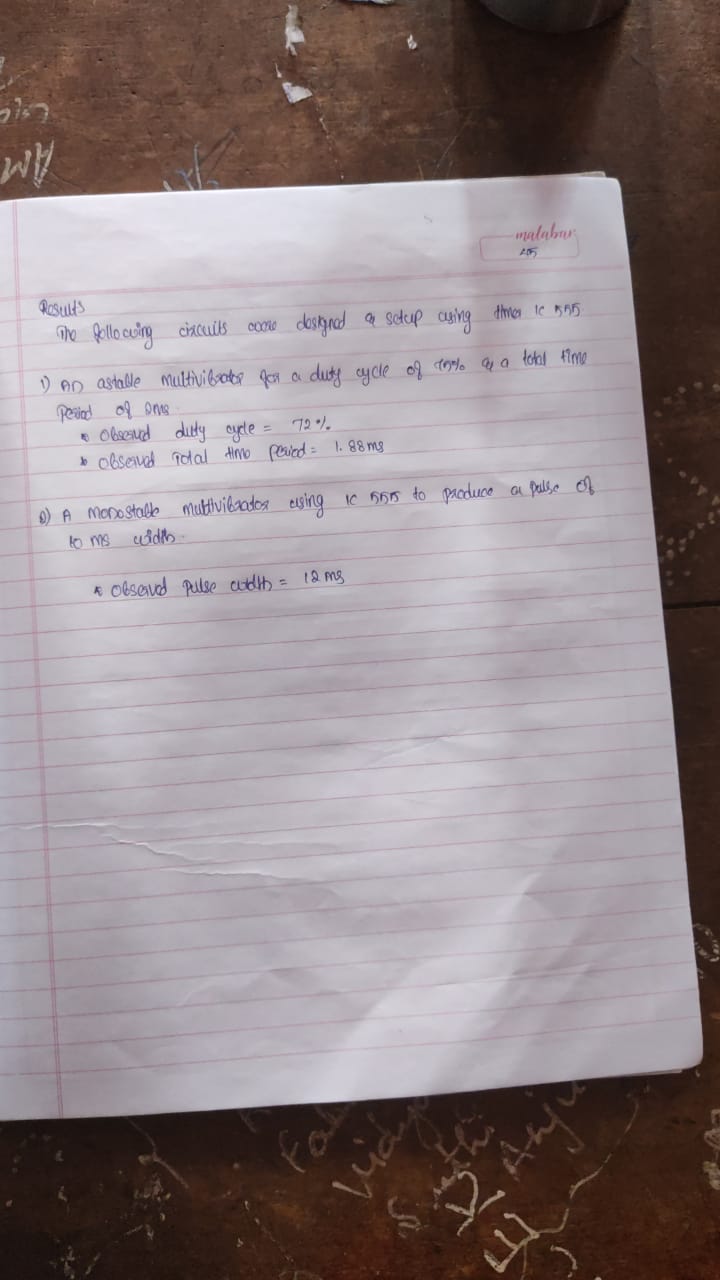 malabar
Results
The following circuits were designed & setup using timer IC 555
1) An astable multivibrator for a duty cycle of 75% & a total time
period of 2ms.
* Observed duty cycle = 72%
* Observed Total time period = 1.88ms
2) A monostable multivibrator using IC 555 to produce a pulse of
10 ms width.
* Observed pulse width = 12 ms